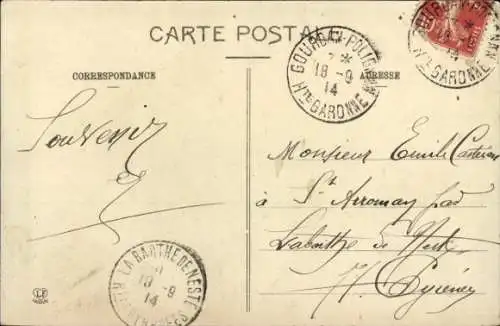 CARTE POSTALE
CORRESPONDANCE
ADRESSE
GOURDAN-POLIGNAN
* 18 -9 14
Hte GARONNE
Souvenir
Monsieur Emile Castéran
à St Arroman par
Labarthe de Neste
Htes Pyrénées
LA BARTHE DE NESTE
19 -9
14